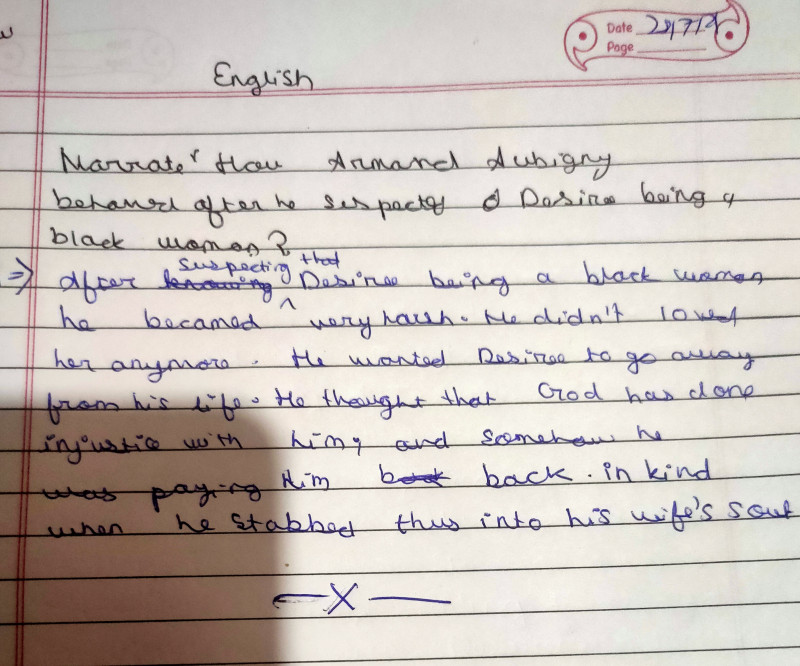 Date 28/7/2
Page
English
Narrate how Armand Aubigny
behaved after he suspected Desiree being a
black woman?
suspecting that
⇒ After knowing Desiree being a black woman
he becamed ^ very harsh. He didn't loved
her anymore. He wanted Desiree to go away
from his life. He thought that God has done
injustice with him, and somehow he
was paying Him back back. in kind
when he stabbed thus into his wife's soul
—X—